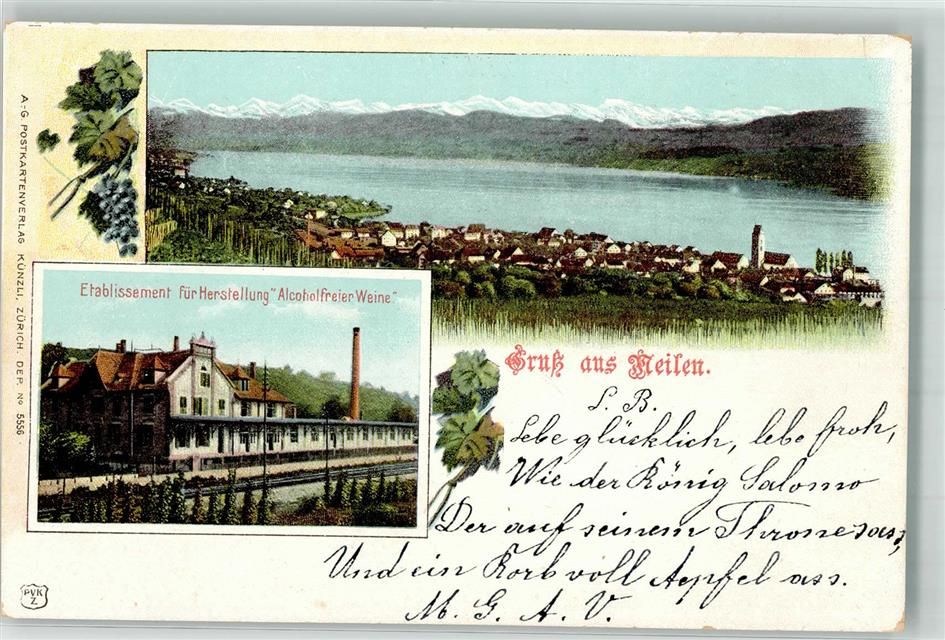 A.-G. POSTKARTENVERLAG KÜNZLI, ZÜRICH. DEP. No 5556.
Etablissement für Herstellung "Alcoholfreier Weine"
Gruß aus Meilen.
L. B.
Lebe glücklich, lebe froh,
Wie der König Salomo
Der auf seinem Throne sass,
Und ein Korb voll Aepfel ass.
M. G. A. V.
PVK
Z